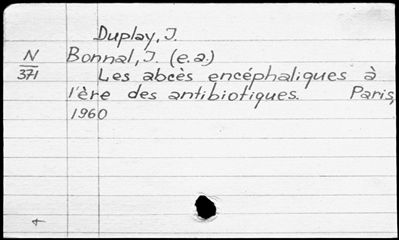 Duplay, J.
N Bonnal, J. (e.a.)
371 Les abcès encéphaliques à
l'ère des antibiotiques. Paris,
1960